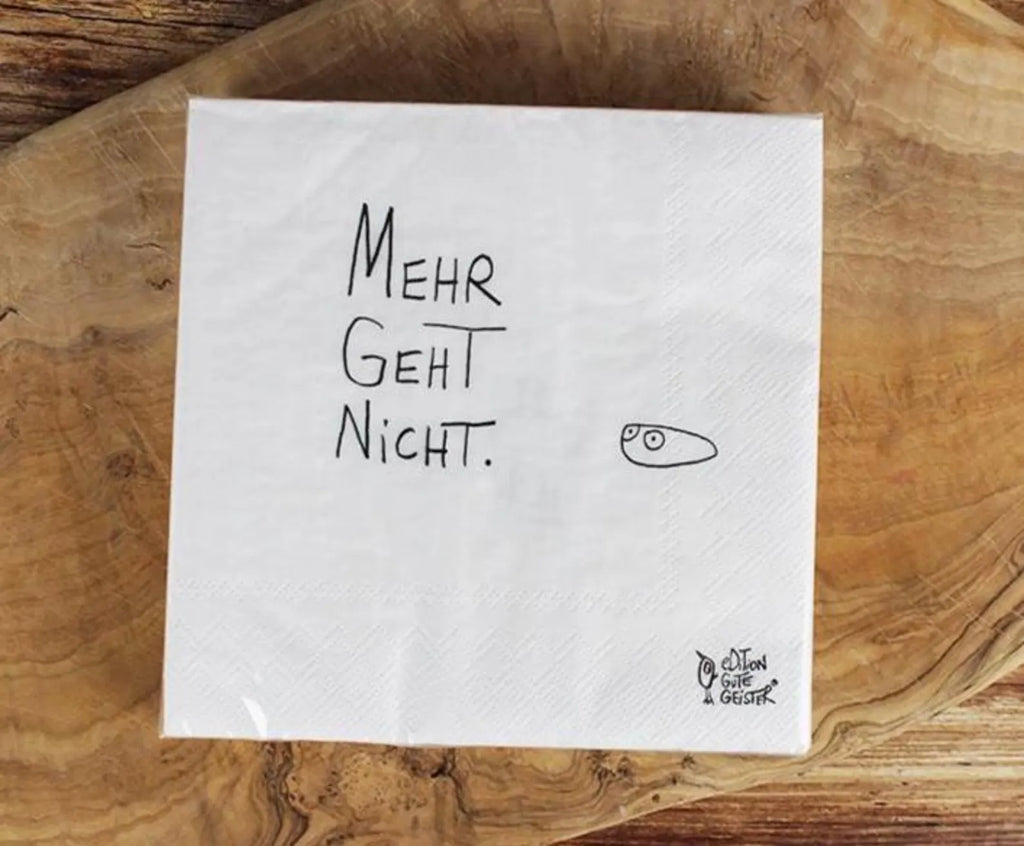 MEHR
GEHT
NiCHT.
eDiTiON
GUTE
GEiSTER®